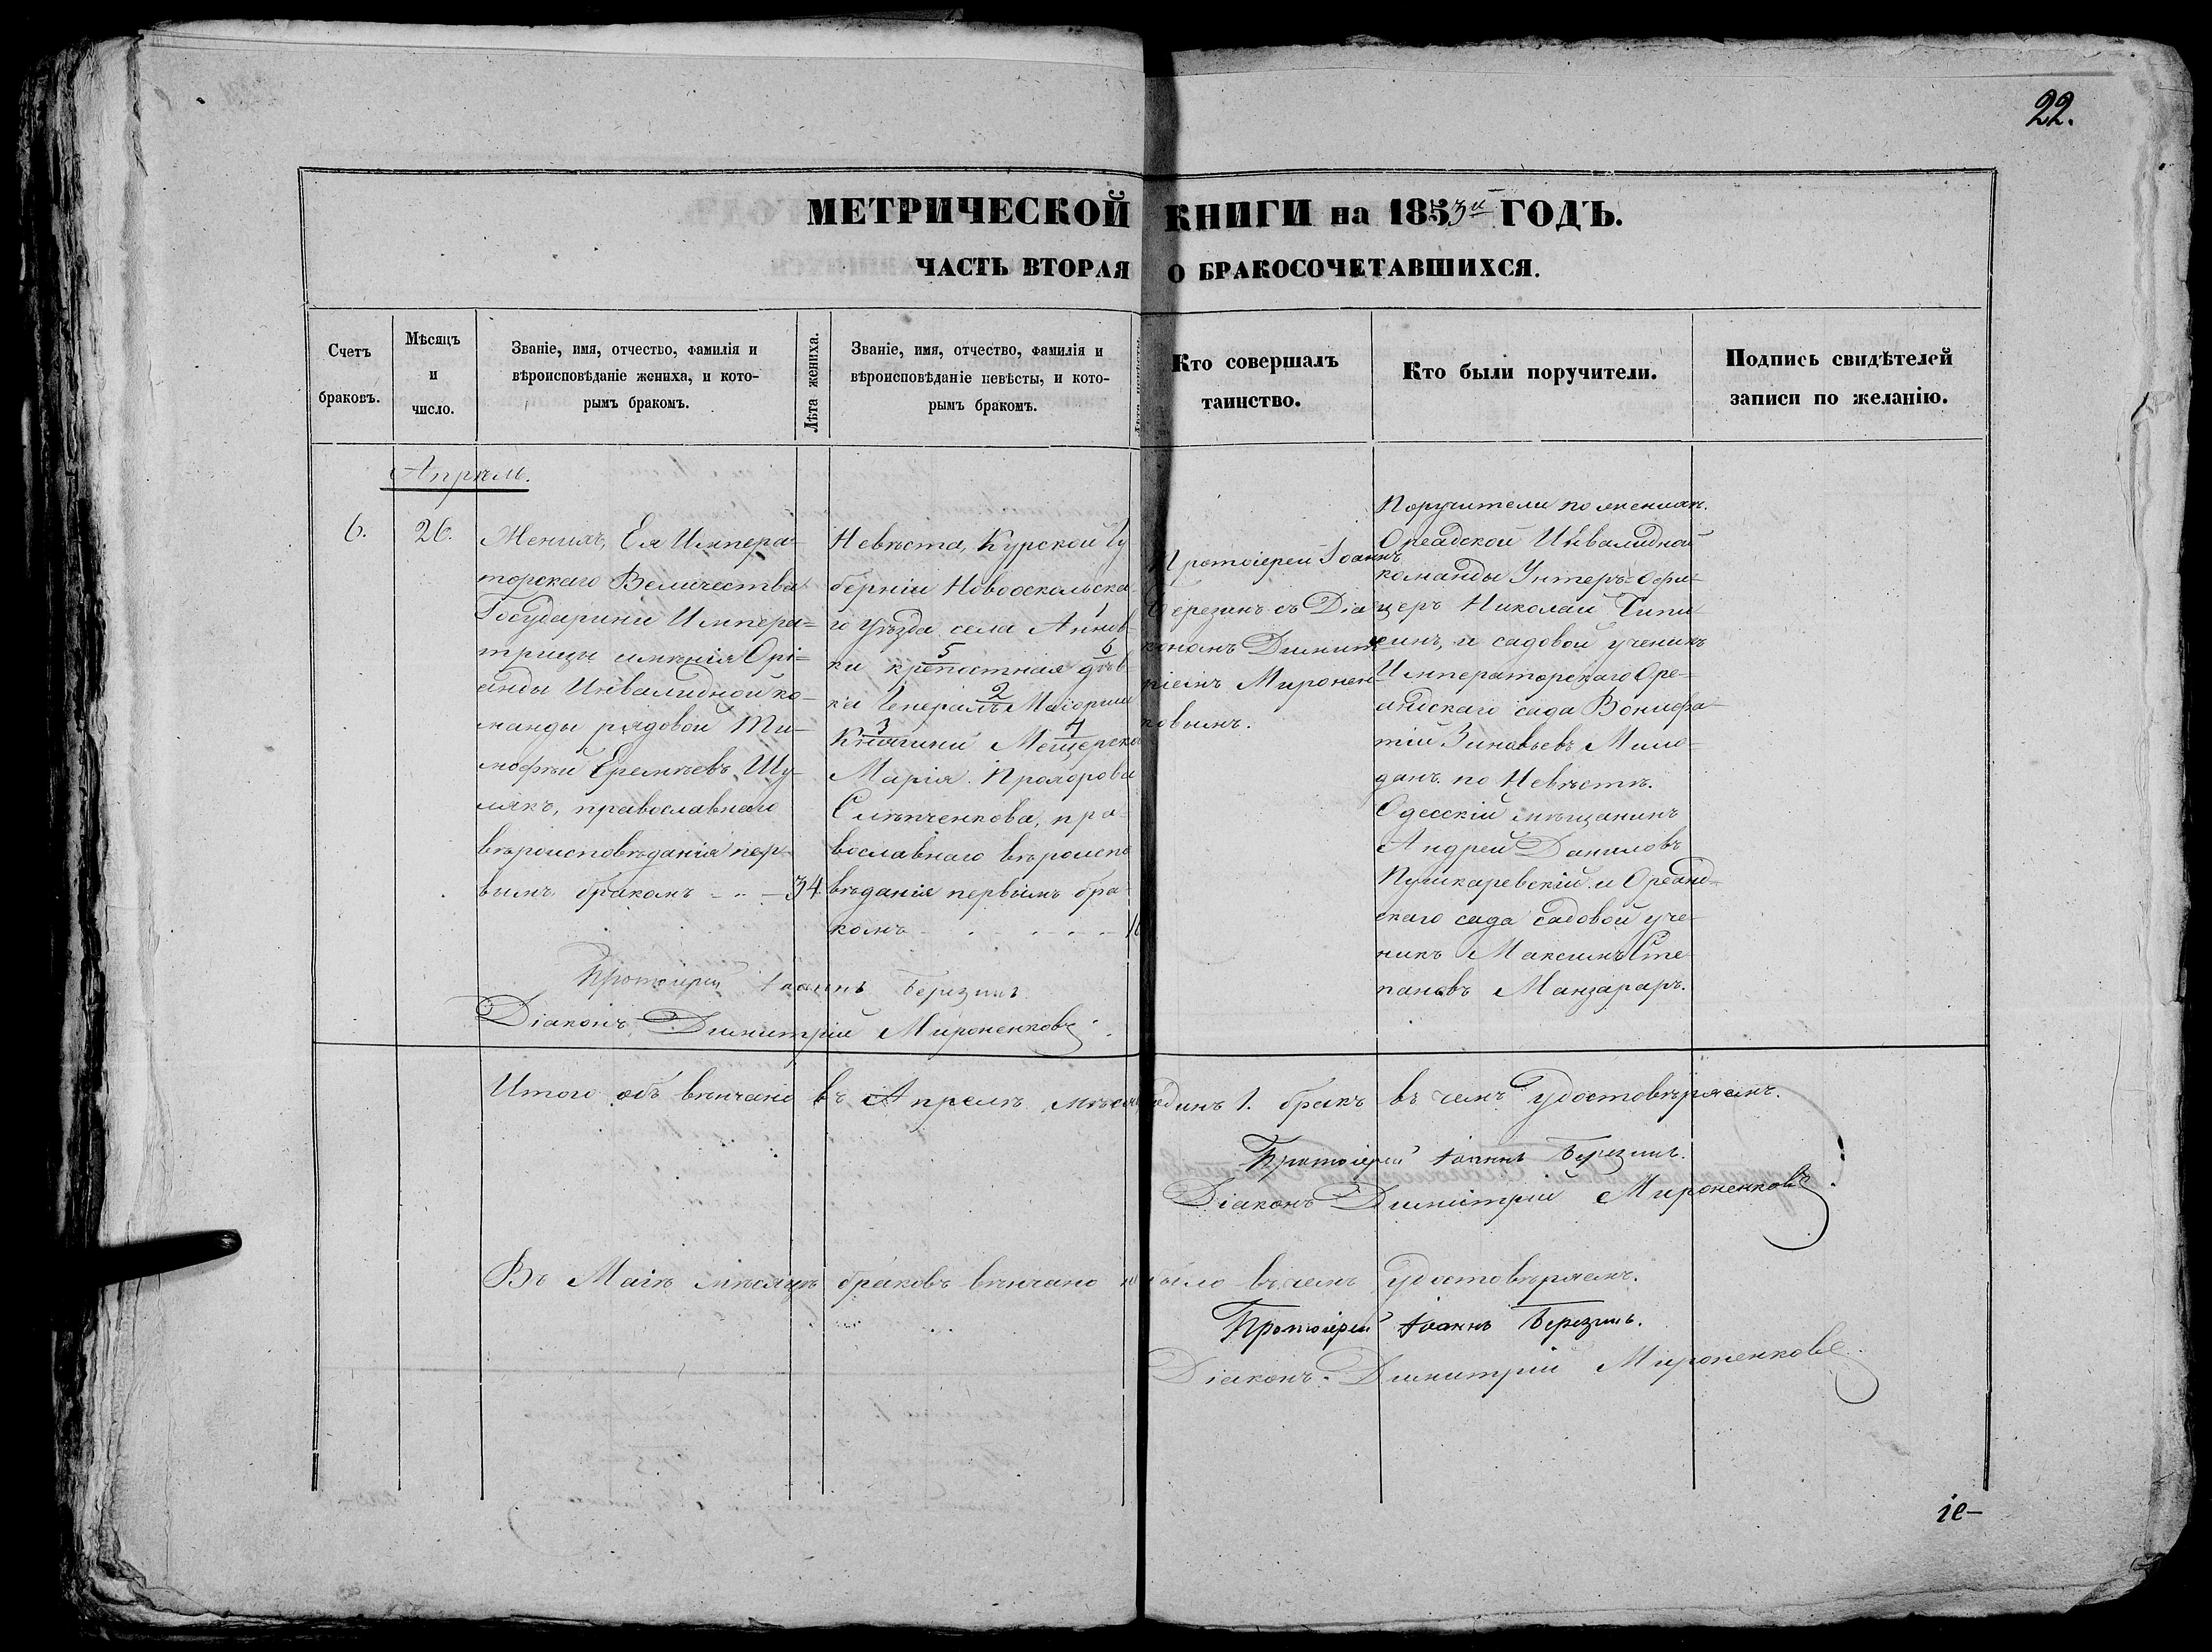 22.
МЕТРИЧЕСКОЙ КНИГИ на 1853й ГОДЪ.
ЧАСТЬ ВТОРАЯ О БРАКОСОЧЕТАВШИХСЯ.
Счетъ
браковъ.
Мѣсяцъ
и
число.
Званіе, имя, отчество, фамилія и
вѣроисповѣданіе жениха, и кото-
рымъ бракомъ.
Лѣта жениха.
Званіе, имя, отчество, фамилія и
вѣроисповѣданіе невѣсты, и кото-
рымъ бракомъ.
Кто совершалъ
таинство.
Кто были поручители.
Подпись свидѣтелей
записи по желанію.
Апрѣль.
6.
26.
Женихъ, Ея Импера-
торскаго Величества
Государини Импера=
трицы имѣнія Орі=
анды Инвалидной ко-
манды рядовой Ти-
мофѣй Еремѣевъ Шу-
лякъ, православнаго
вѣроисповѣданія пер-
вымъ бракомъ - .. - 34.
Невѣста, Курской Гу
берніи Новооскольска-
1
го уѣзда села Аннов-
5 6
ки крепостная дѣв-
2
ка Генералъ Маіорши
3 4
Княгини Мещерско
Марія Прохорова
Слѣпченкова, пра-
вославнаго вѣроиспо
вѣданія первымъ бра-
комъ - . - . - . -
Протоіерей Іоаннъ
Березинъ съ Діа
кономъ Димит
ріемъ Миронен-
ковымъ.
Поручители по женихѣ.
Ореадской Инвалидной
команды Унтеръ-Офи-
церъ Николай
и садовой ученикъ
Императорскаго Оре-
андскаго сада Вонифа-
тій Зиновьевъ
по Невѣстѣ.
Одесскій мѣщанинъ
Андрей Даниловъ
Пушкаревскій и Ореанд-
скаго сада садовой уче-
никъ Максимъ Сте
пановъ Манзараръ.
Протоіерей Іоаннъ Березинъ.
Діаконъ Димитрій Мироненковъ.
Итого объ вѣнчано въ Апрелѣ мѣсяц одинъ 1. бракъ въ чемъ удостовѣряемъ.
Протоіерей Іоаннъ Березинъ.
Діаконъ Димитрій Мироненковъ.
Въ Маіѣ мѣсяцѣ браковъ вѣнчано н было въ чемъ удостовѣряемъ.
Протоіерей Іоаннъ Березинъ.
Діаконъ Димитрій Мироненковъ
іе-